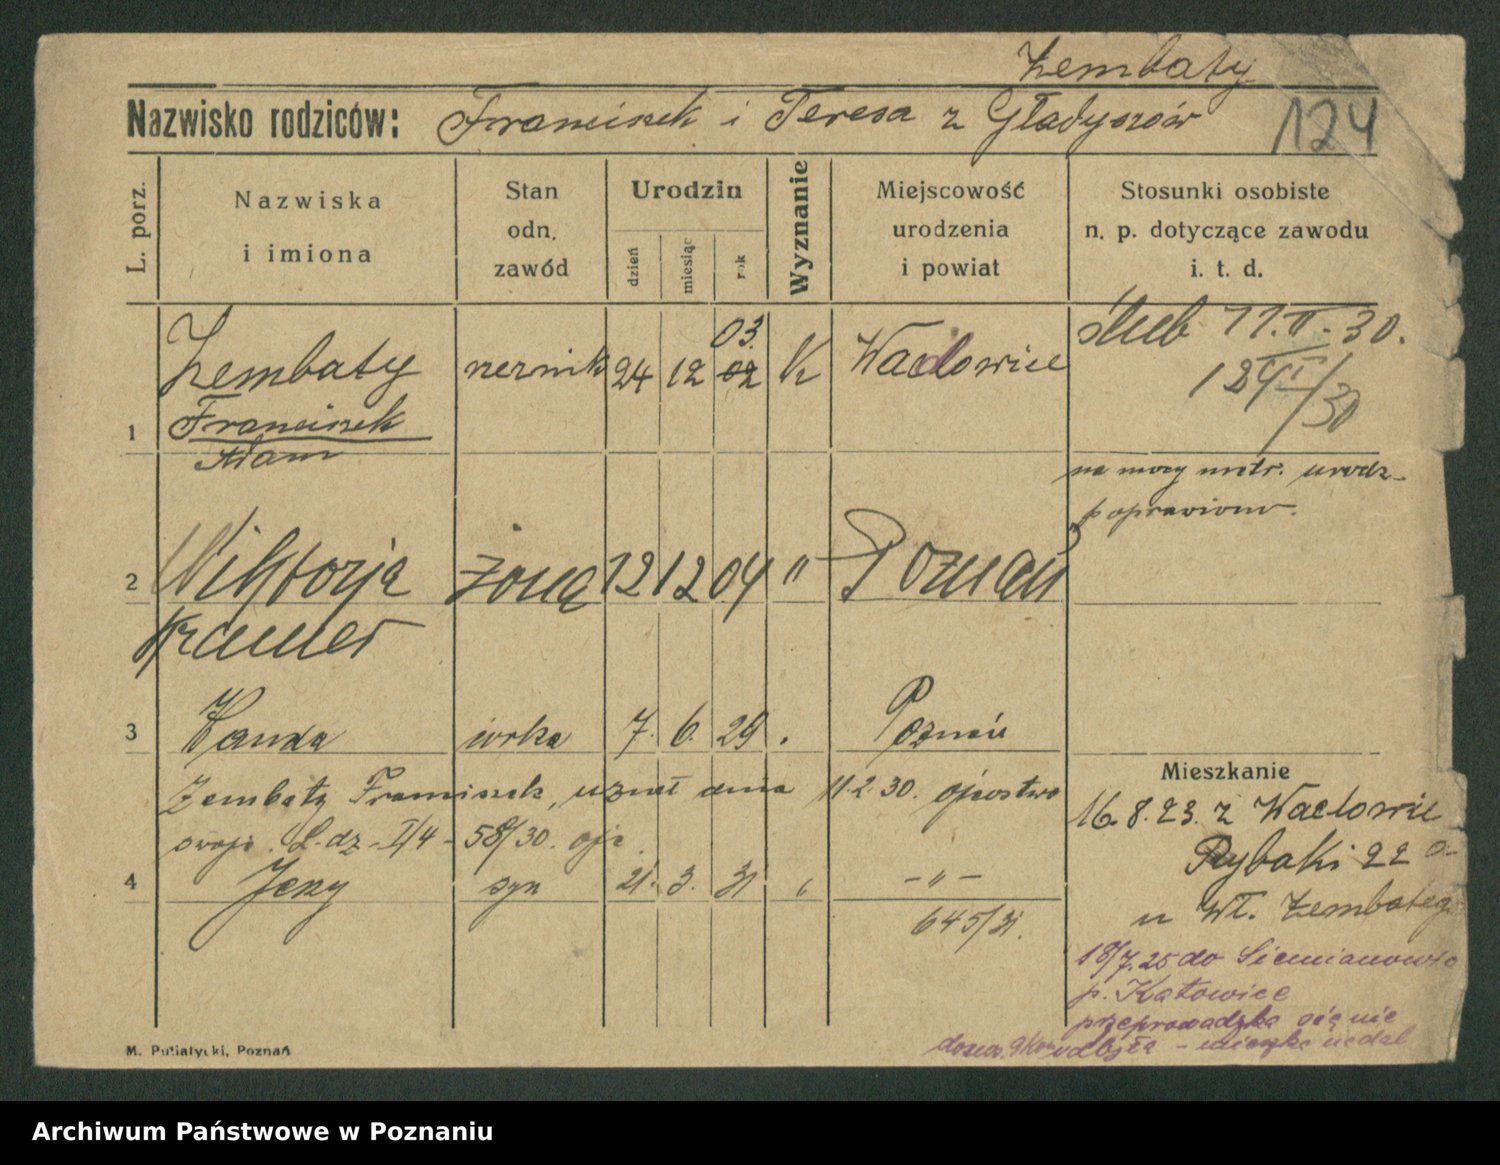 Zembaty
Nazwisko rodziców: Franciszek i Teresa z Gładyszów
124
L. porz.
Nazwiska i imiona
Stan odn. zawód
Urodzin
dzień miesiąc rok
Wyznanie
Miejscowość urodzenia i powiat
Stosunki osobiste n. p. dotyczące zawodu i. t. d.
1 Zembaty rzeźnik 24 12 02 03. K Wadowice ślub 11.II.30.
Franciszek
Adam
na mocy metr. urodz.
poprawiono.
2 Wiktorja żona 12 12 04 " Poznań
Kramer
3 Wanda córka 7. 6. 29 . Poznań
Zembaty Franciszek, uznał dnia 11.2.30. ojcostwo
swoje. L. dz. I/4 - 58/30.
4 Jerzy syn 21. 3. 31 " - " -
645/31.
Mieszkanie
16.8.23. z Wadowic
Rybaki 22
u Wł. Zembateg
18/7.25 do Siemianowic
p. Katowice
przeprowadzka się nie
odbyła - mieszka nadal
M. Putiatycki, Poznań
Archiwum Państwowe w Poznaniu